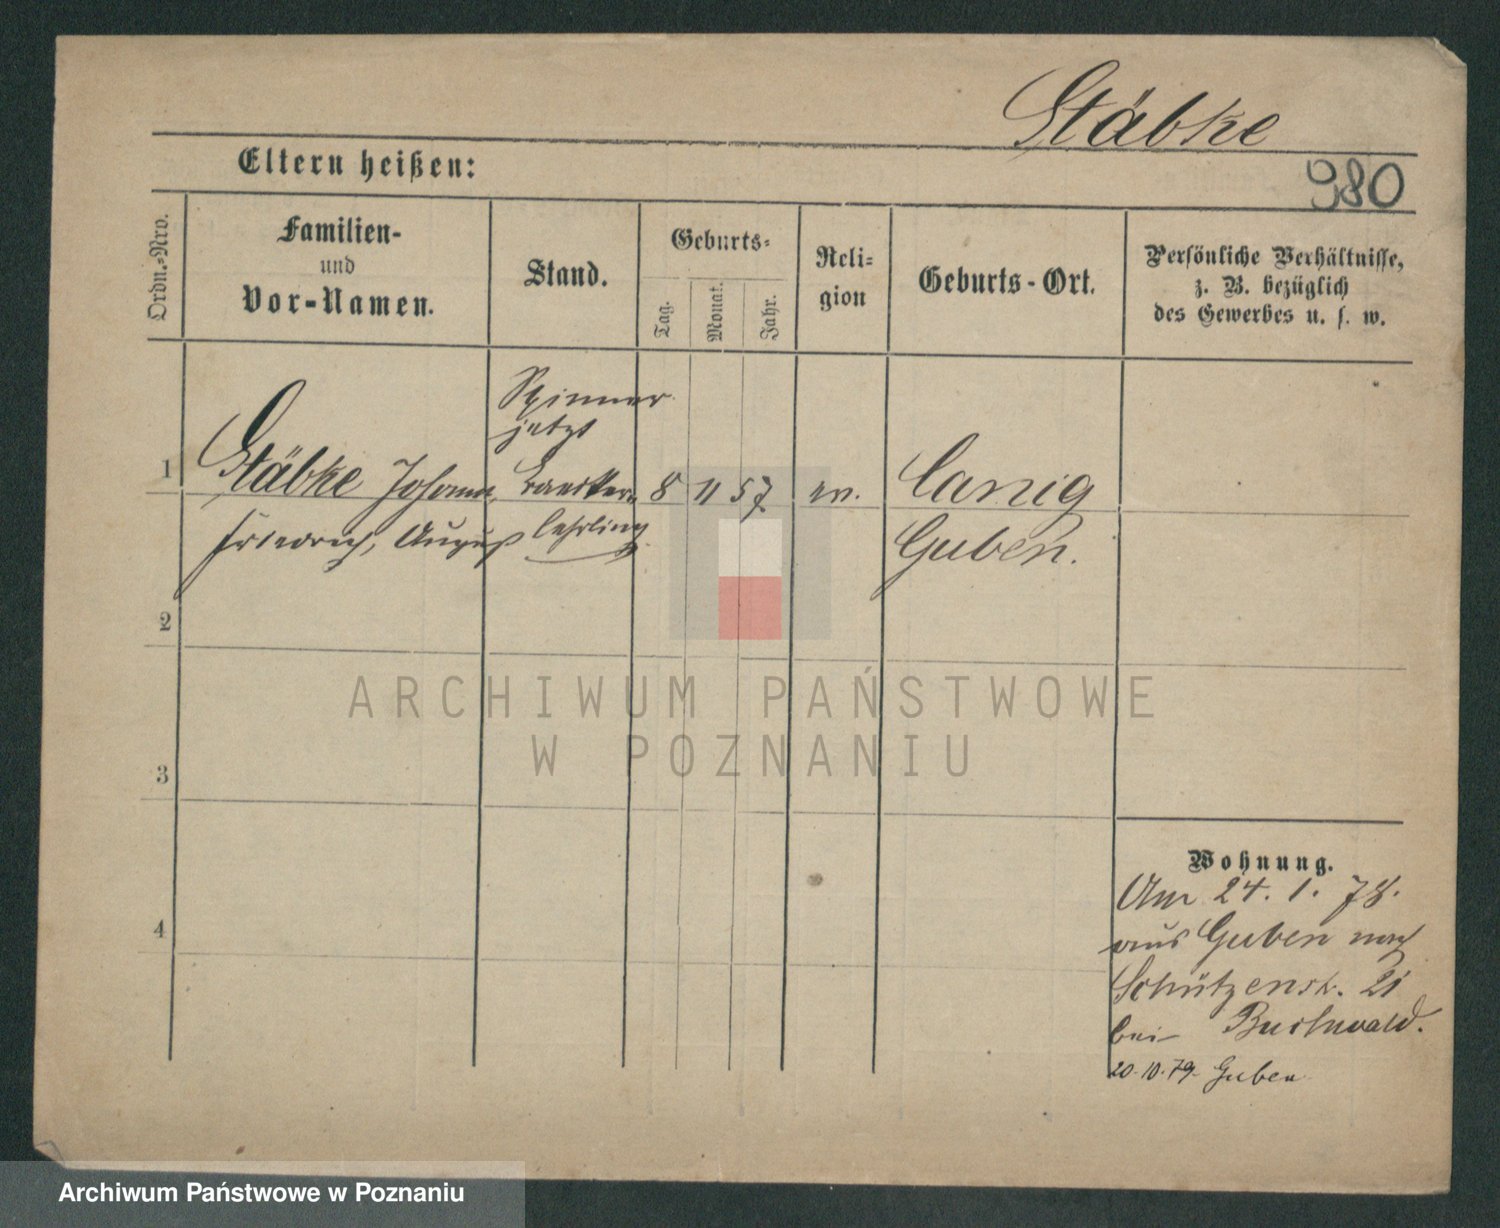 Stäbke
Eltern heißen:
980
Ordn.=Nro.
Familien-
und
Vor-Namen.
Stand.
Geburts-
Tag.
Monat.
Jahr.
Reli-
gion
Geburts-Ort.
Persönliche Verhältnisse,
z. B. bezüglich
des Gewerbes u. s. w.
Spinner
jetzt
1 Stäbke Johann 8 11 57 ev. Canig
Friedrich, August lehrling Guben.
2
3
4
ARCHIWUM PAŃSTWOWE
W POZNANIU
Wohnung.
24. 1. 78.
aus Guben nach
Schützenstr. 21
bei Buchwald.
20.10.79. Guben
Archiwum Państwowe w Poznaniu